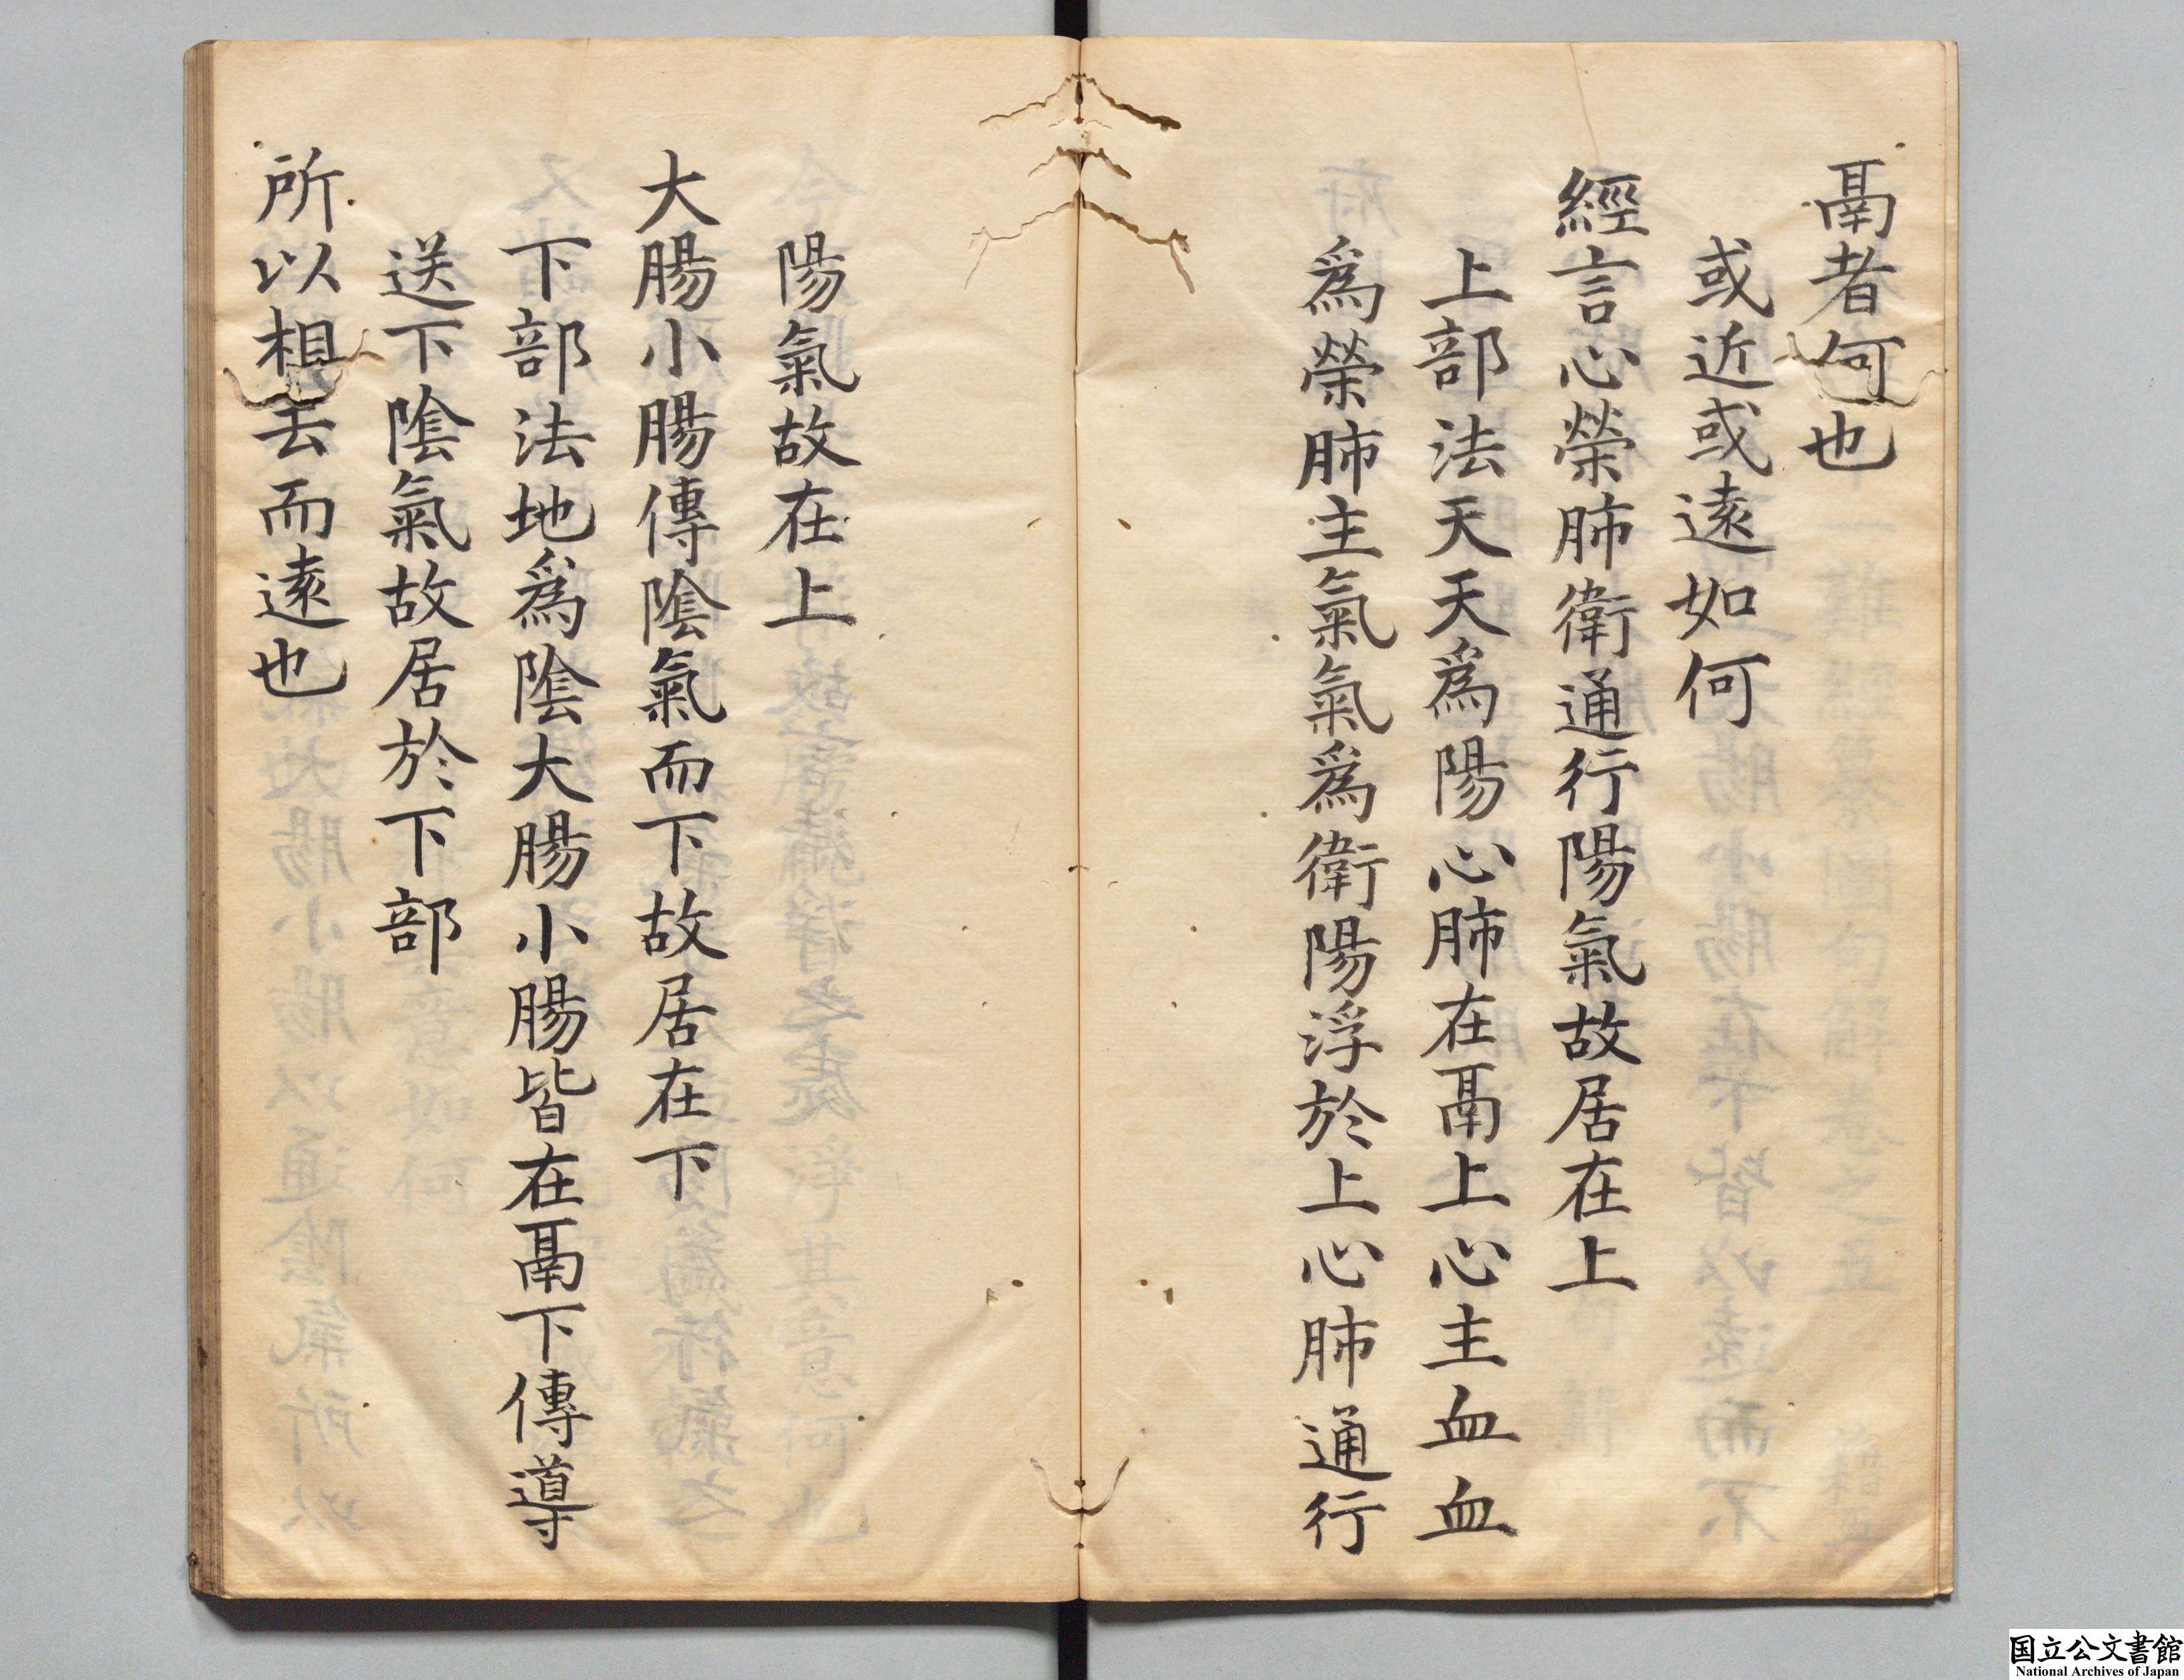 鬲者何也
或近或遠如何
經言心榮肺衛通行陽氣故居在上
上部法天天爲陽心肺在鬲上心主血血
爲榮肺主氣氣爲衛陽浮於上心肺通行
陽氣故在上
大腸小腸傳陰氣而下故居在下
下部法地爲陰大腸小腸皆在鬲下傳導
送下陰氣故居於下部
所以相去而遠也
国立公文書館
National Archives of Japan